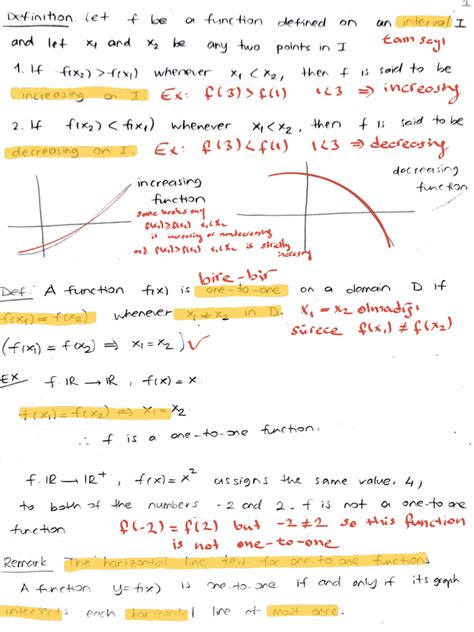 1
Definition: Let f be a function defined on an interval I
and let x₁ and x₂ be any two points in I
tam sayı
1. If f(x₂) > f(x₁) whenever x₁ < x₂, then f is said to be
increasing on I. Ex: f(3) > f(1) 1<3 ⇒ increasing
2. If f(x₂) < f(x₁) whenever x₁ < x₂, then f is said to be
decreasing on I. Ex: f(3) < f(1) 1<3 ⇒ decreasing
increasing
function
some books say
f(x₂) ≥ f(x₁) x₁ < x₂
is increasing or nondecreasing
and f(x₂) > f(x₁) x₁ < x₂ is strictly
increasing
decreasing
function
bire-bir
Def: A function f(x) is one-to-one on a domain D if
f(x₁) = f(x₂) whenever x₁ ≠ x₂ in D. x₁ = x₂ olmadığı
sürece f(x₁) ≠ f(x₂)
(f(x₁) = f(x₂) ⇒ x₁ = x₂) ✓
EX f: IR → IR, f(x) = x.
f(x₁) = f(x₂) ⇒ x₁ = x₂
∴ f is a one-to-one function.
f: IR → IR⁺, f(x) = x² assigns the same value, 4,
to both of the numbers -2 and 2. f is not a one-to-one
function f(-2) = f(2) but -2 ≠ 2 so this function
is not one-to-one
Remark The horizontal line test for one-to-one functions
A function y = f(x) is one-to-one if and only if its graph
intersects each horizontal line at most once.